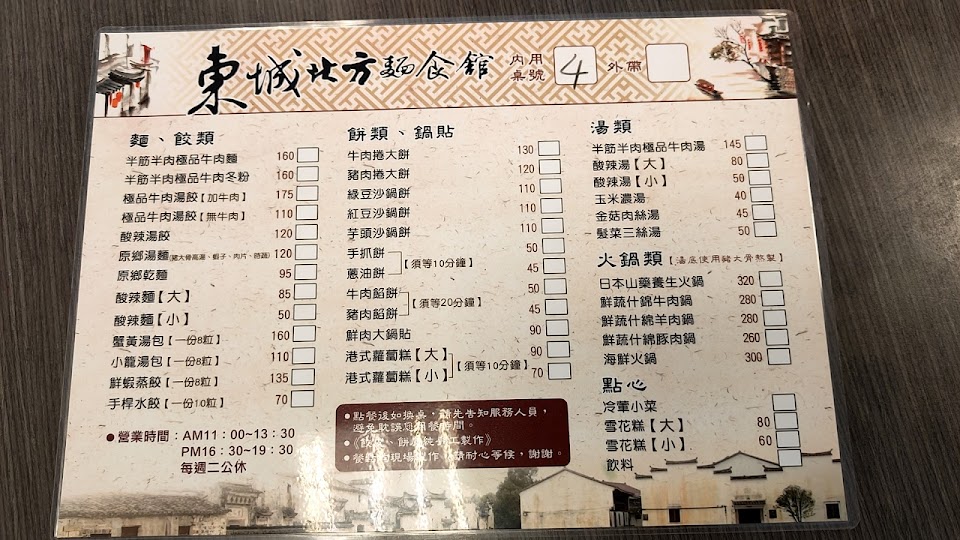 東城北方麵食館
內用桌號 4 外帶
麵、餃類
半筋半肉極品牛肉麵 160
半筋半肉極品牛肉冬粉 160
極品牛肉湯餃【加牛肉】 175
極品牛肉湯餃【無牛肉】 110
酸辣湯餃 120
原鄉湯麵(豬大骨高湯、蝦子、肉片、時蔬) 120
原鄉乾麵 95
酸辣麵【大】 85
酸辣麵【小】 50
蟹黃湯包【一份8粒】 160
小龍湯包【一份8粒】 110
鮮蝦蒸餃【一份8粒】 135
手桿水餃【一份10粒】 70
●營業時間：AM11：00~13：30
PM16：30~19：30
每週二公休
餅類、鍋貼
牛肉捲大餅 130
豬肉捲大餅 120
綠豆沙鍋餅 110
紅豆沙鍋餅 110
芋頭沙鍋餅 110
手抓餅 50
【須等10分鐘】
蔥油餅 45
牛肉餡餅 50
【須等20分鐘】
豬肉餡餅 45
鮮肉大鍋貼 90
港式蘿蔔糕【大】 90
【須等10分鐘】
港式蘿蔔糕【小】 70
●點餐後如換桌，請先告知服務人員，
避免耽誤您用餐時間。
●《餃皮、餅皮純手工製作》
●餐點為現場製作，請耐心等候，謝謝。
湯類
半筋半肉極品牛肉湯 145
酸辣湯【大】 80
酸辣湯【小】 50
玉米濃湯 40
金菇肉絲湯 45
髮菜三絲湯 50
火鍋類【湯底使用豬大骨熬製】
日本山藥養生火鍋 320
鮮蔬什錦牛肉鍋 280
鮮蔬什錦羊肉鍋 280
鮮蔬什錦豚肉鍋 260
海鮮火鍋 300
點心
冷葷小菜
雪花糕【大】 80
雪花糕【小】 60
飲料